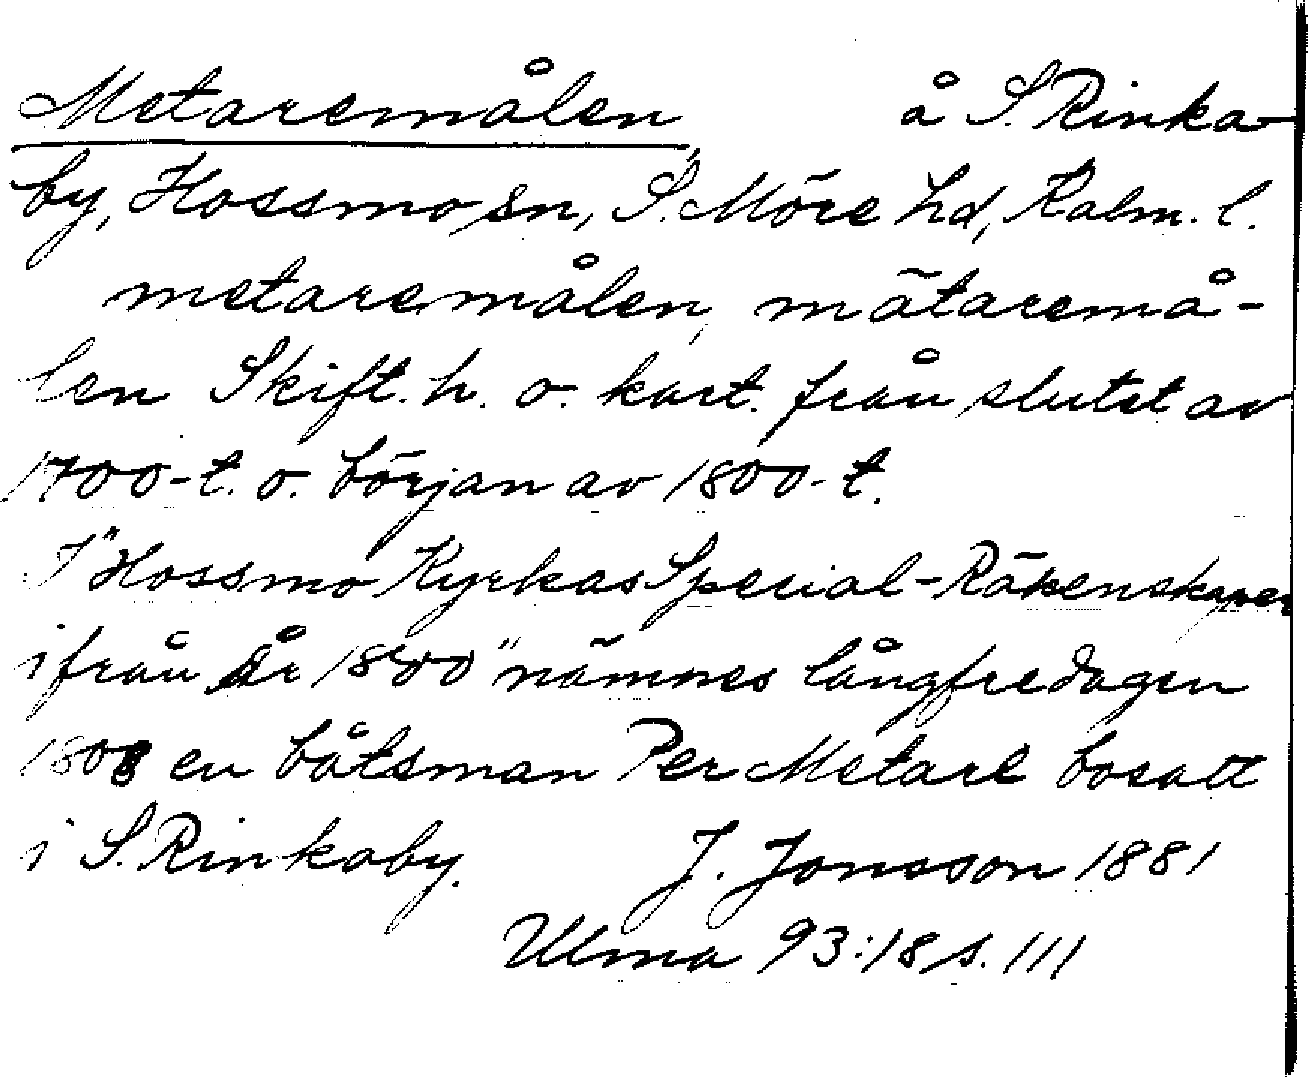 Metaremålen, å S. Rinka-
by, Hossmo sn, S. Möre hd, Kalm. l.
metaremålen, mätaremå-
len Skift. h. o. kart. från slutet av
1700-t. o. början av 1800-t.
I "Hossmo Kyrkas Special-Räkenskaper
ifrån År 1800" nämnes långfredagen
1808 en båtsman Per Metare bosatt
i S. Rinkaby. J. Jonsson 1881
Ulma 93:18 s. 111